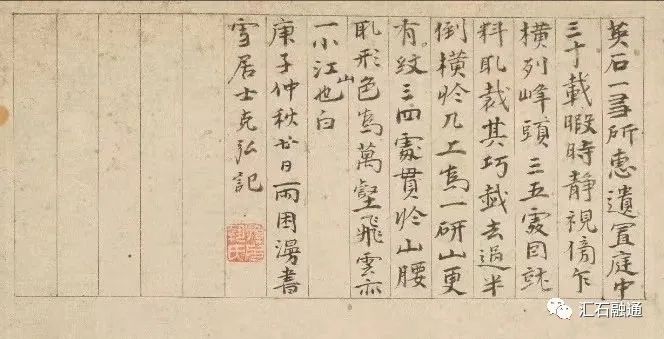 英石一所惠遺置庭中
三十載暇時靜視傍乍
橫列峰頭三五處因就
料取裁其巧截去過半
倒橫於几上為一研山更
有紋三四處貫於山腰
取形色為萬壑飛雲亦
一小江山也白
庚子仲秋廿日雨困漫書
雪居士克弘記
汇石融通